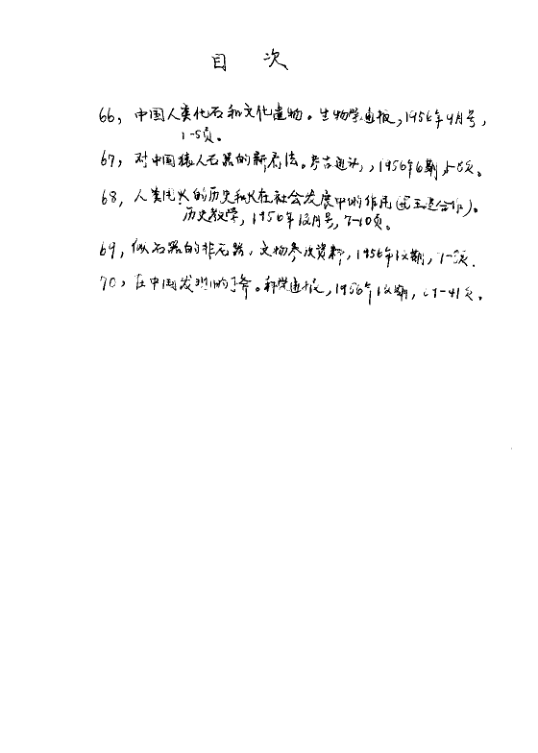 目 次
66, 中国人类化石和文化遗物。生物学通报, 1956年4月号,
1-5页。
67, 对中国猿人石器的新看法。考古通讯, 1956年6期 1-8页。
68, 人类用火的历史和火在社会发展中的作用(王建合作)。
历史教学, 1956年12月号, 7-10页。
69, 似石器的非石器。文物参考资料, 1956年12期, 1-2页.
70, 在中国发现的手斧。科学通报, 1956年12期, -41页。